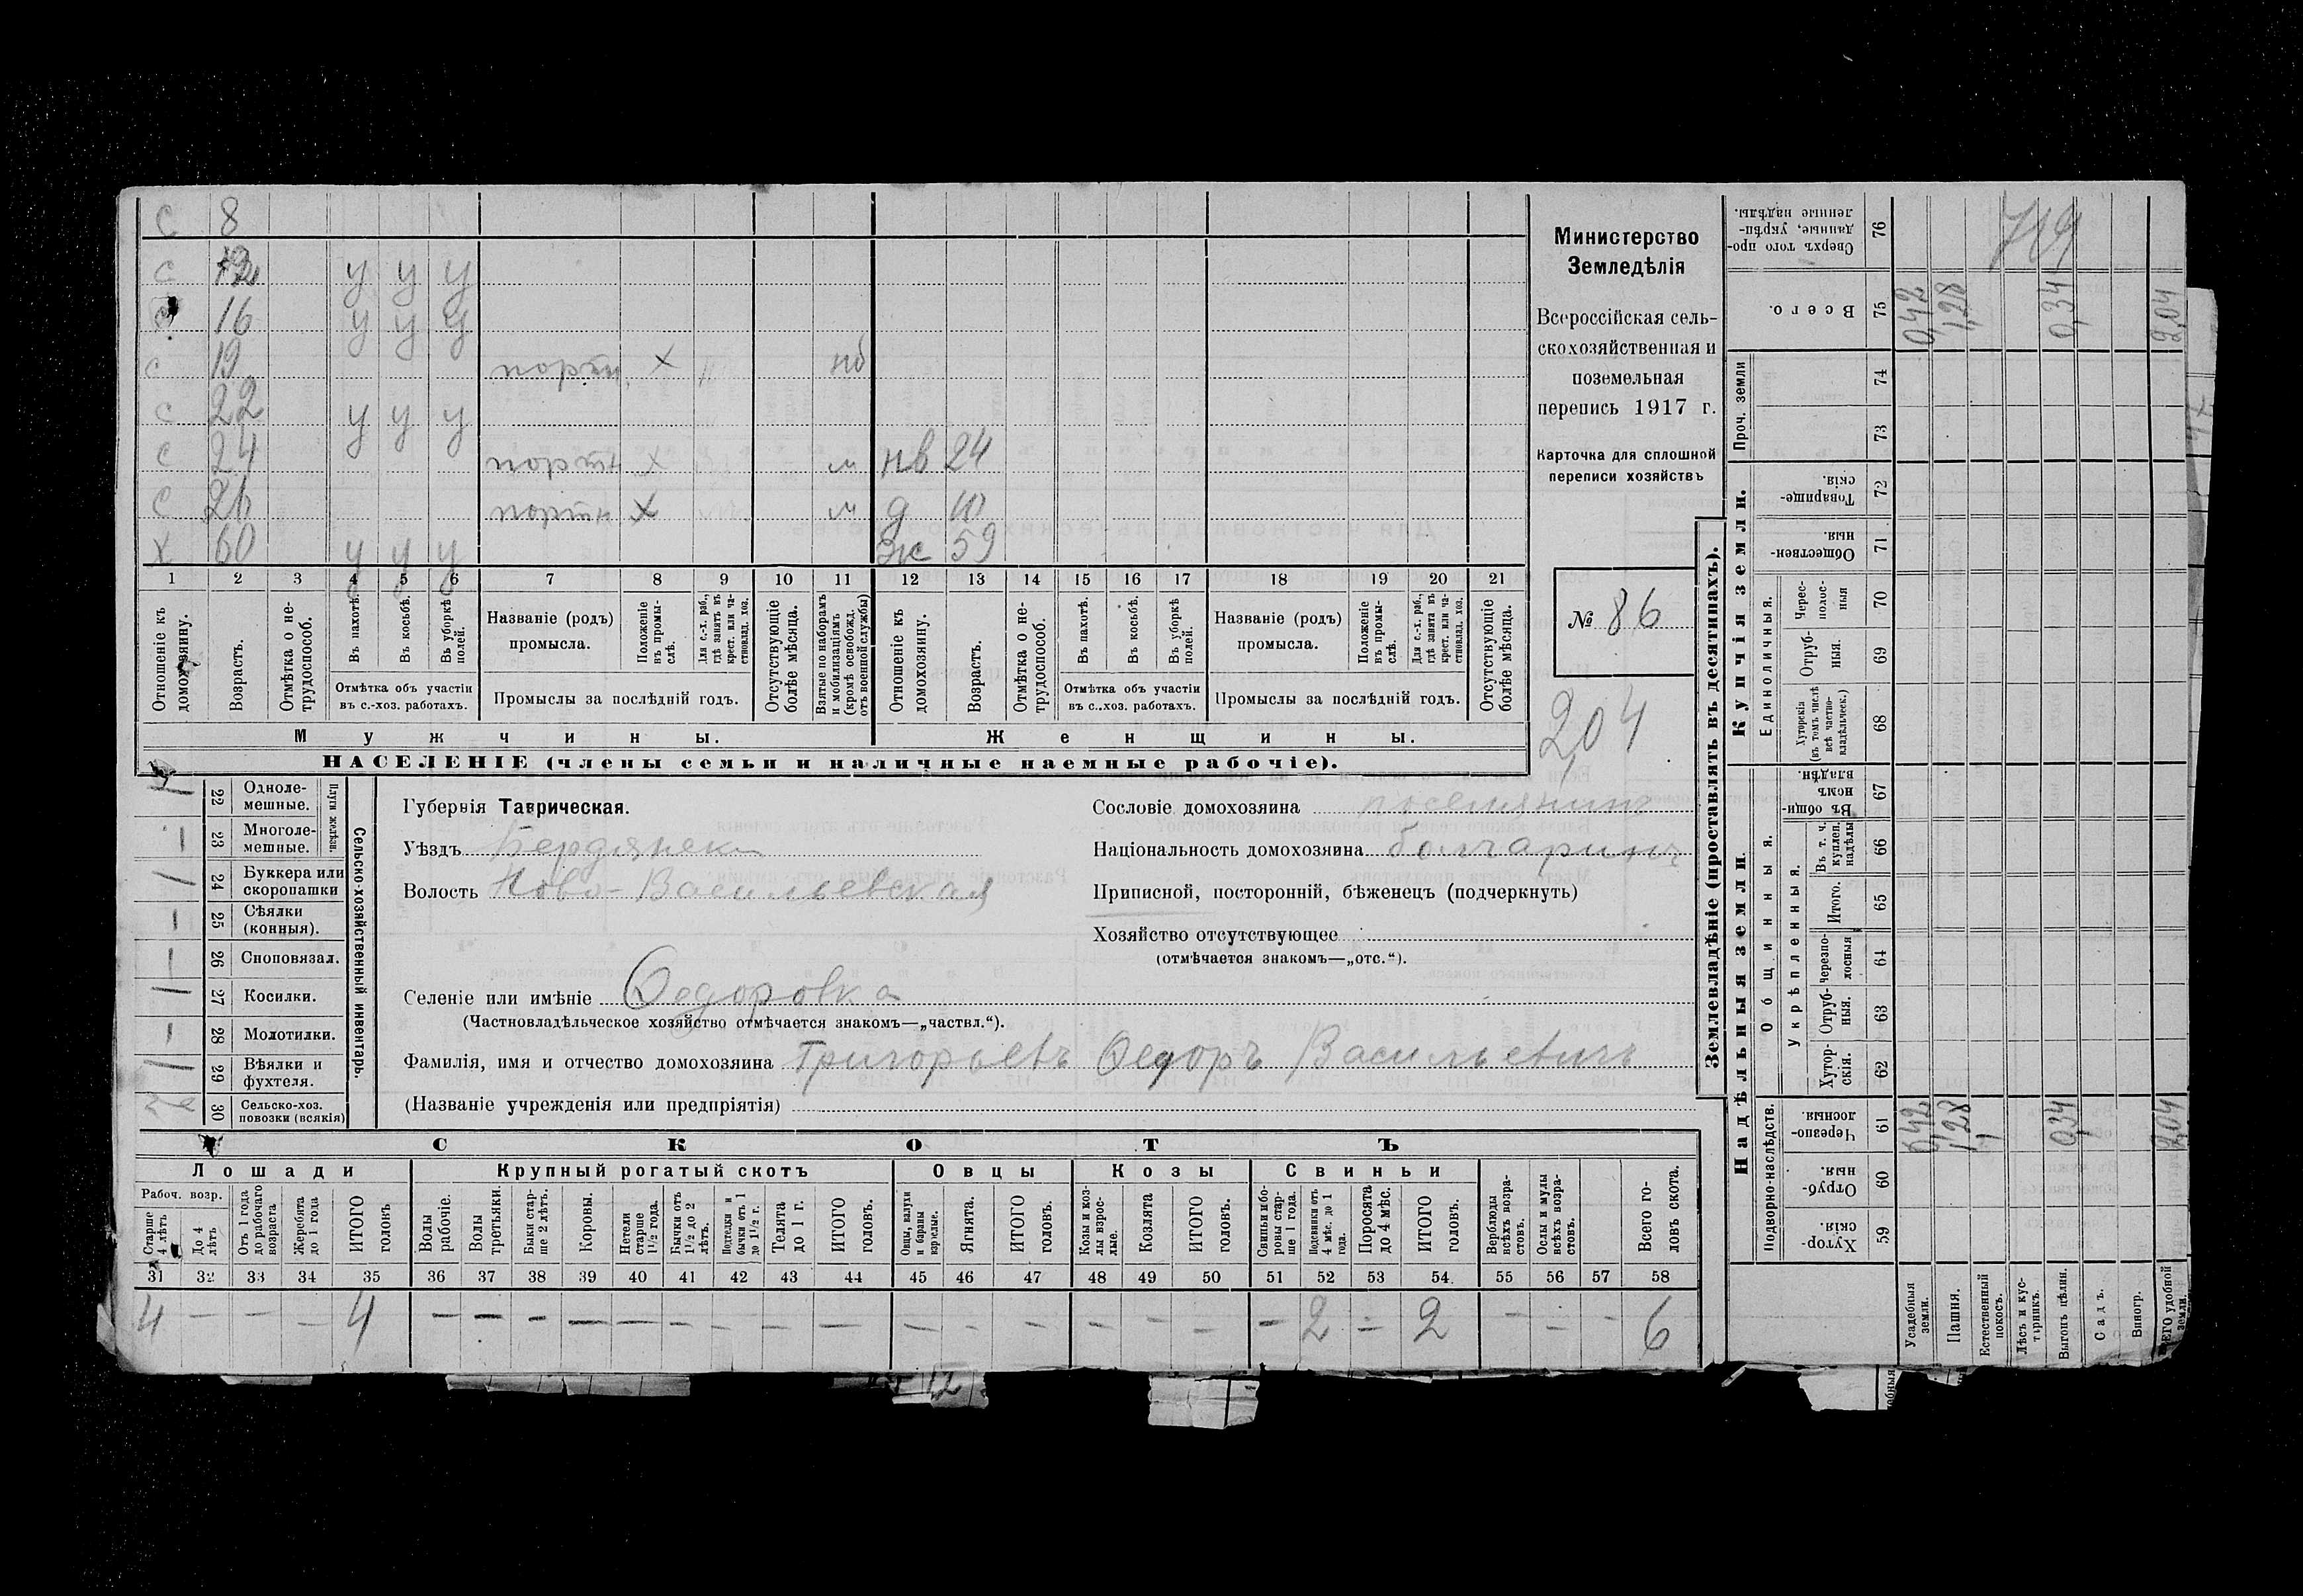 с 8
с 12 у у у
с 16 у у у
с 19 портн. х нб
с 22 у у у
с 24 портн х м нв 24
с 26 портн х м д 10
х 60 у у у ж 59
1 2 3 4 5 6 7 8 9 10 11 12 13 14 15 16 17 18 19 20 21
Отношеніе къ домохозяину.
Возрастъ.
Отмѣтка о нетрудоспособ.
Въ пахотѣ.
Въ косьбѣ.
Въ уборкѣ полей.
Отмѣтка объ участіи въ с.-хоз. работахъ.
Названіе (родъ) промысла.
Положеніе въ промыслѣ.
Для с.-х. раб., гдѣ занятъ въ крест. или частновлад. хоз.
Промыслы за послѣдній годъ.
Отсутствующіе болѣе мѣсяца.
Взятые по наборамъ и мобилизаціямъ (кромѣ освобожд. отъ военной службы)
Отношеніе къ домохозяину.
Возрастъ.
Отмѣтка о нетрудоспособ.
Въ пахотѣ.
Въ косьбѣ.
Въ уборкѣ полей.
Отмѣтка объ участіи въ с..хоз. работахъ.
Названіе (родъ) промысла.
Положеніе въ промыслѣ.
Для с.-х. раб., гдѣ занята въ крест. или частновлад. хоз.
Промыслы за послѣдній годъ.
Отсутствующіе болѣе мѣсяца.
Мужчины. Женщины.
НАСЕЛЕНІЕ (члены семьи и наличные наемные рабочіе).
Министерство
Земледѣлія
Всероссійская сель-
скохозяйственная и
поземельная
перепись 1917 г.
Карточка для сплошной
переписи хозяйствъ
№ 86
2,04
22 Однолемешные.
23 Многолемешные.
Плуги желѣзн.
24 Буккера или скоропашки
25 Сѣялки (конныя).
26 Сноповязал.
27 Косилки.
28 Молотилки.
29 Вѣялки и фухтеля.
30 Сельско-хоз. повозки (всякія)
Сельско-хозяйственный инвентарь.
Губернія Таврическая.
Уѣздъ Бердянскій
Волость Ново-Васильевская
Сословіе домохозяина поселянинъ
Національность домохозяина болгаринъ
Приписной, посторонній, бѣженецъ (подчеркнуть)
Хозяйство отсутствующее
(отмѣчается знакомъ—„отс.“).
Селеніе или имѣніе Ѳедоровка
(Частновладѣльческое хозяйство отмѣчается знакомъ—„частвл.“).
Фамилія, имя и отчество домохозяина Григорьевъ Ѳедоръ Васильевичъ
(Названіе учрежденія или предпріятія)
СКОТЪ
Лошади Крупный рогатый скотъ Овцы Козы Свиньи
Рабоч. возр.
Старше 4 лѣтъ
До 4 лѣтъ
Отъ 1 года до рабочаго возраста
Жеребята до 1 года
ИТОГО головъ
Волы рабочіе.
Волы третьяки.
Быки старше 2 лѣтъ.
Коровы.
Нетели старше 1½ года.
Бычки отъ 1½ до 2 лѣтъ.
Подтелки и бычки отъ 1 до 1½ г.
Телята до 1 г.
ИТОГО головъ.
Овцы, валухи и бараны взрослые.
Ягнята.
ИТОГО головъ.
Козы и козлы взрослые.
Козлята
ИТОГО головъ.
Свиньи боровы старше 1 года.
Подсвинки отъ 4 мѣс. до 1 года.
Поросята до 4 мѣс.
ИТОГО головъ.
Верблюды всѣхъ возрастовъ.
Ослы и мулы всѣхъ возрастовъ.
Всего головъ скота.
31 32 33 34 35 36 37 38 39 40 41 42 43 44 45 46 47 48 49 50 51 52 53 54. 55 56 57 58
4 — — — 4 — — — — — — — — — — — — — — — — 2 — 2 — — — 6
Землевладѣніе (проставлять въ десятинахъ).
Купчія земли.
Надѣльныя земли.
Сверхъ того проданные, укрѣпленные надѣлы. 76 719
Всего. 75 0,42 1,28 0,34 2,04
Проч. земли 74 73
Товарищескія. 72
Общественныя. 71
Единоличныя.
Чересполосныя 70
Отрубныя. 69
Хуторскія (въ томъ числѣ всѣ частновладѣльческ.) 68
Общинныя.
Въ общинномъ владѣн. 67
Укрѣпленныя.
Въ т. ч. куплен. надѣлы 66
Итого. 65
Черезполосныя 64
Отрубныя. 63
Хуторскія. 62
Подворно-наслѣдств.
Черезполосныя. 61 0,42 1,28 0,34 2,04
Отрубныя. 60
Хуторскія. 59
Усадебныя земли.
Пашня.
Естественный покосъ.
Лѣсъ и кустарникъ.
Выгонъ цѣлин.
Садъ.
Виногр.
удобной земли.
12